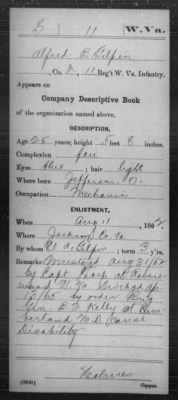 G 11 W. Va.
Alfred B. Gilpin
, Co. , 11 Reg't W. Va. Infantry.
Appears on
Company Descriptive Book
of the organization named above.
DESCRIPTION.
Age 28 years; height 5 feet 8 inches.
Complexion fair
Eyes blue ; hair light
Where born Jefferson, O.
Occupation Mechanic
ENLISTMENT.
When Aug 11 , 1862.
Where Jackson Co Va
By whom Gilpin ; term 3 y'rs.
Remarks: Mustered Aug 31/62
by Capt at
W. Va
by order Brig
Gen. B. F. Kelly at Cum
berland M.D. Cause
Disability
Holmes
Copyist.